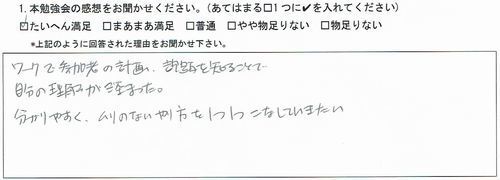 1. 本勉強会の感想をお聞かせください。(あてはまる□1つに✔を入れてください)
☑たいへん満足 □まあまあ満足 □普通 □やや物足りない □物足りない
*上記のように回答された理由をお聞かせ下さい。
ワークで参加者の計画、課題を知ることで
自分の理解が深まった。
分かりやすく、ムリのない やり方を1つ1つこなしていきたい